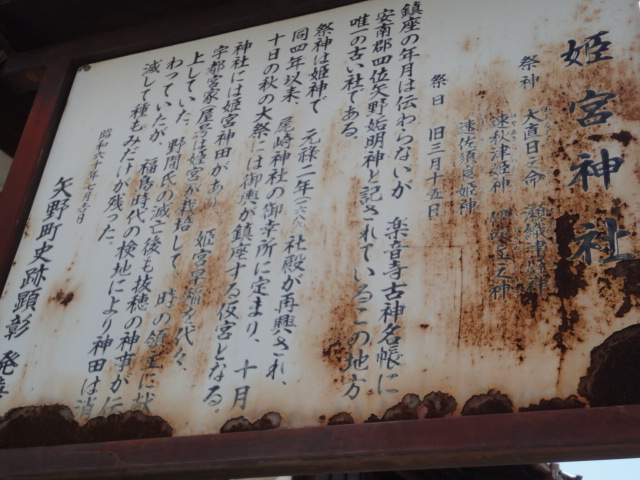 姫宮神社
祭神 大直日之命 瀬織津姫神
速秋津姫神
速佐須良姫神
祭日 旧三月十五日
鎮座の年月は伝わらないが 楽音寺古神名帳に
安南郡四位矢野姤明神と記されているこの地方
唯一の古い社である。
祭神は姫神で 元禄二年 社殿が再興され、
同四年以来、尾崎神社の御幸所に定まり、十月
十日の秋の大祭には御輿が鎮座する仮宮となる。
神社には姫宮神田があり 姫宮早稲を代々、
宇都宮家屋号は姫宮が栽培して 時の領主に献
上していた。野間氏の滅亡後も抜穂の神事が伝
わっていたが、福島時代の検地により神田は消
滅して種もみだけが残った。
昭和六 年七月
矢野町史跡顕彰 発